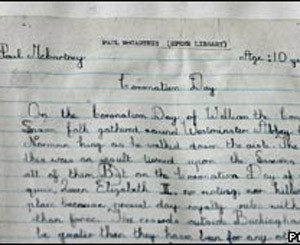 PAUL McCARTNEY (SPEKE LIBRARY)
Paul McCartney Age: 10 y
Coronation Day
On the Coronation Day of William the Con
Saxon folk gathered round Westminster Abbey
Norman king as he walked down the aisle. The
this was an insult turned upon the Saxons
all of them. But on the Coronation Day of
queen Queen Elizabeth II, no rioting nor killing
place because present day royalty rule with
than force. The crowds outside Buckingham
be greater than they have been for any o